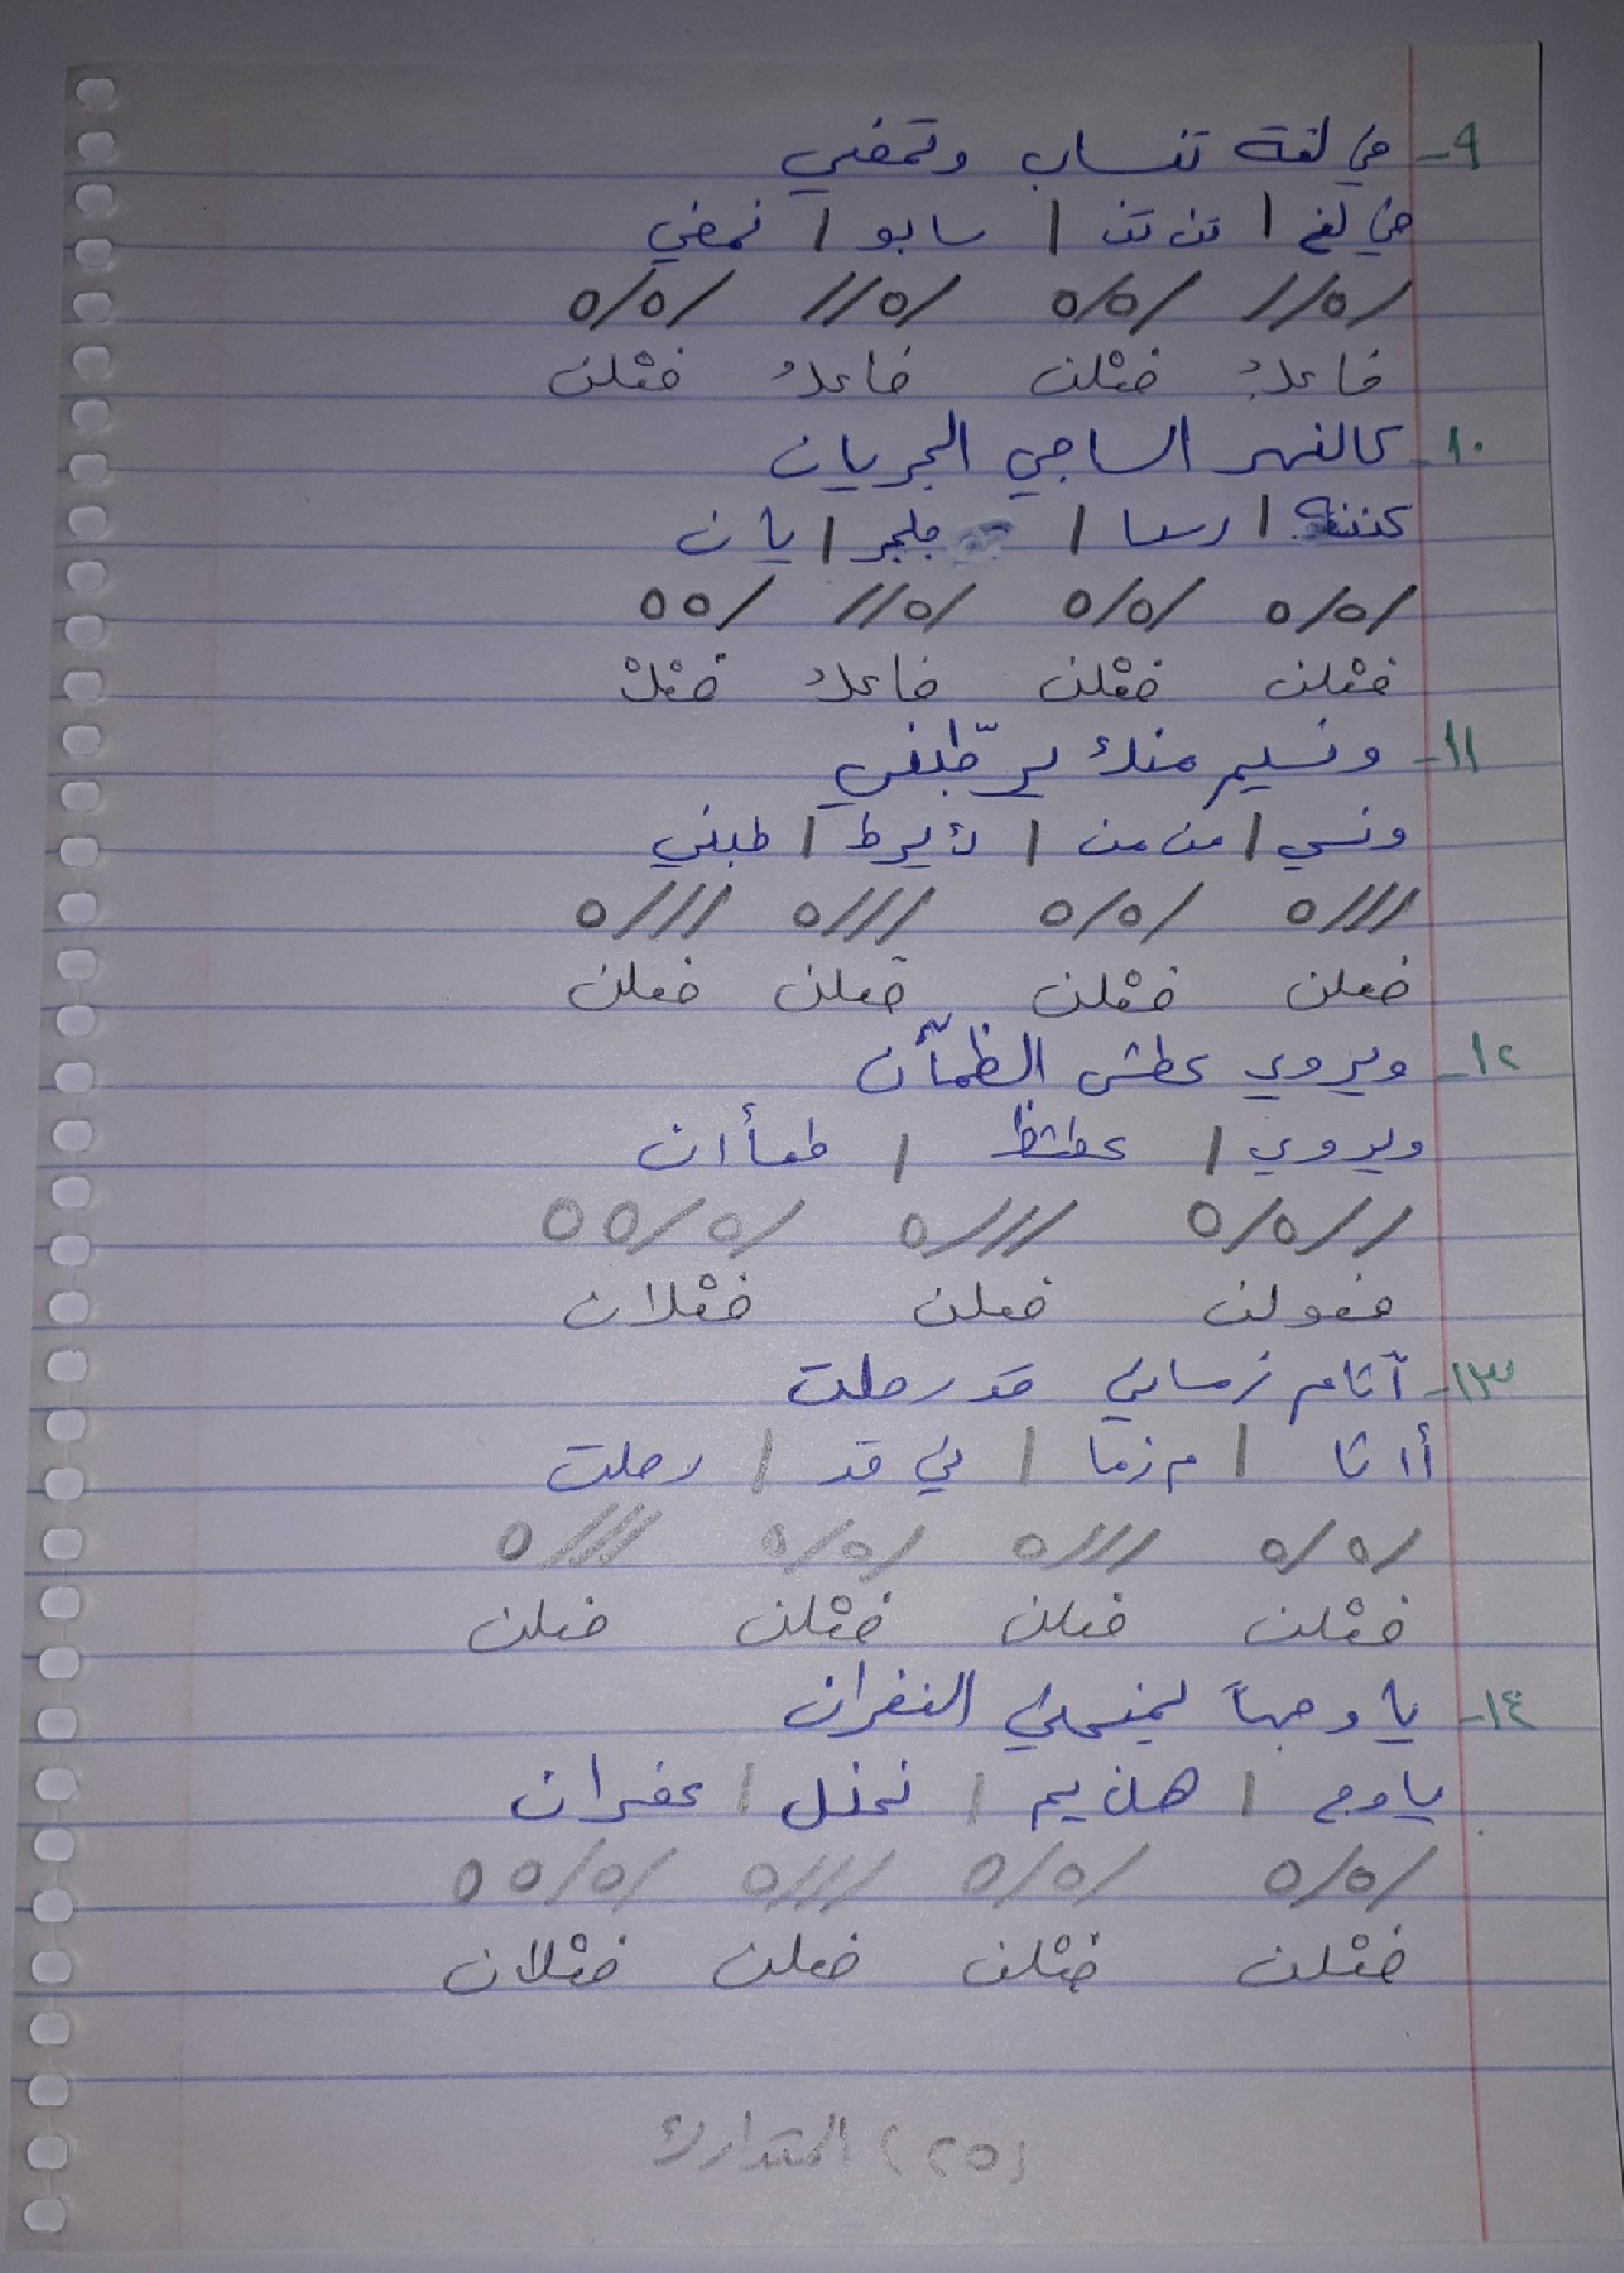 ٩- في لغة تنساب وتمضي
في لغ / تن تن / سابو / تمضي
/ه// /ه/ه /ه// /ه/ه
فاعلُ فعْلن فاعلُ فعْلن
١٠- كالنهر الساجي الجريان
كننه / رسسا / جلجر / يان
/ه/ه /ه/ه /ه// /ه ه
فعْلن فعْلن فاعلُ فعْلْ
١١- ونسيم منك يرطّبني
ونسي / من من / ك يرط / طبني
///ه /ه/ه ///ه ///ه
فعلن فعْلن فعلن فعلن
١٢- ويروي عطش الظمآن
ويروي / عطشظ / ظمأان
//ه/ه ///ه /ه/ه ه
فعولن فعلن فعْلان
١٣- آثام زماني قد رحلت
أاثا / م زما / ني قد / رحلت
/ه/ه ///ه /ه/ه ///ه
فعْلن فعلن فعْلن فعلن
١٤- يا وجهاً يمنحني الغفران
ياوج / هن يم / نحنل / غفران
/ه/ه /ه/ه ///ه /ه/ه ه
فعْلن فعْلن فعلن فعْلان
(٢٥) المتدارك